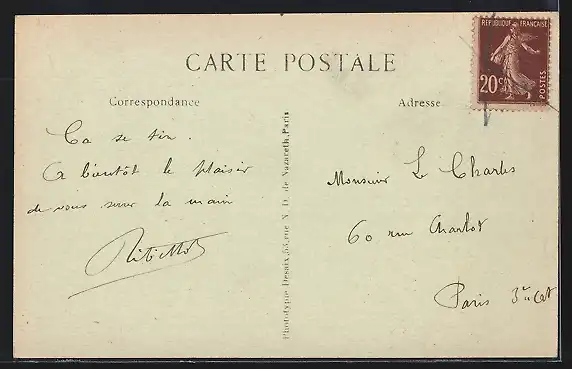 CARTE POSTALE
RÉPUBLIQUE FRANÇAISE
20 c.
POSTES
Correspondance
Adresse
Ça se tire.
A bientôt le plaisir
de vous serrer la main
Monsieur Le Charles
60 rue Charlot
Paris 3e
Phototypie Desaix, 53, rue N. D. de Nazareth, Paris